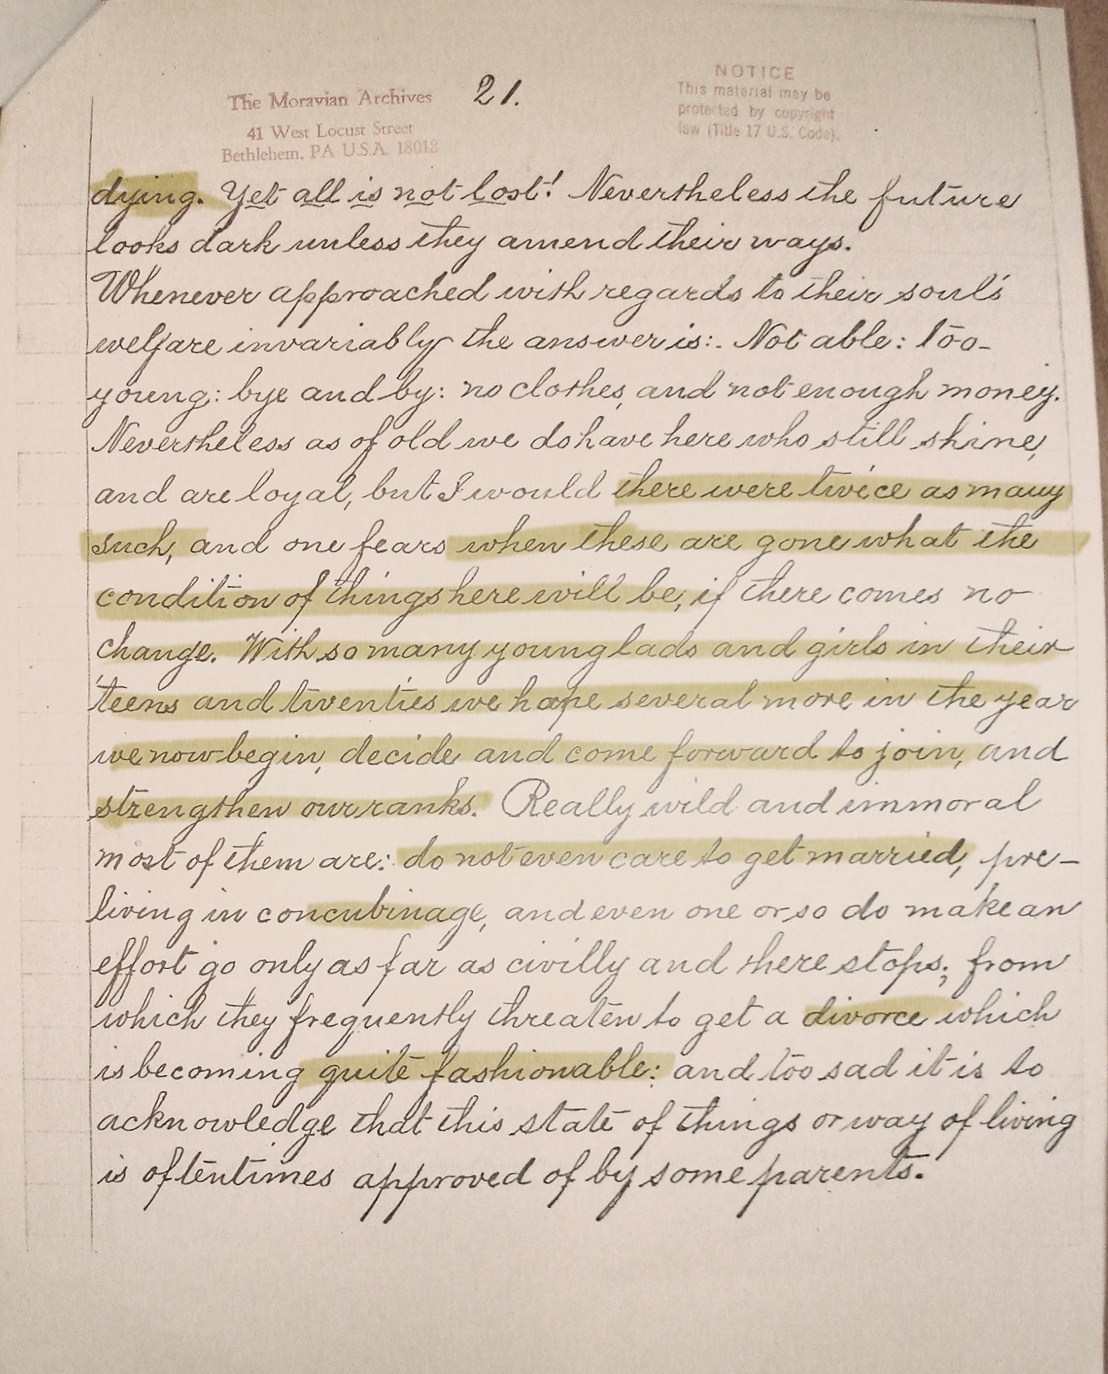 The Moravian Archives
41 West Locust Street
Bethlehem, PA U.S.A. 18018
21.
NOTICE
This material may be
protected by copyright
law (Title 17 U.S. Code).
dying. Yet all is not lost! Nevertheless the future
looks dark unless they amend their ways.
Whenever approached with regards to their soul's
welfare invariably the answer is:- Not able: too-
young: bye and by: no clothes, and not enough money.
Nevertheless as of old we do have here who still shine,
and are loyal, but I would there were twice as many
such, and one fears when these are gone what the
condition of things here will be, if there comes no
change. With so many young lads and girls in their
teens and twenties we hope several more in the year
we now begin, decide and come forward to join, and
strengthen our ranks. Really wild and immoral
most of them are: do not even care to get married, pre-
living in concubinage, and even one or so do make an
effort go only as far as civilly and there stops; from
which they frequently threaten to get a divorce which
is becoming quite fashionable: and too sad it is to
acknowledge that this state of things or way of living
is oftentimes approved of by some parents.